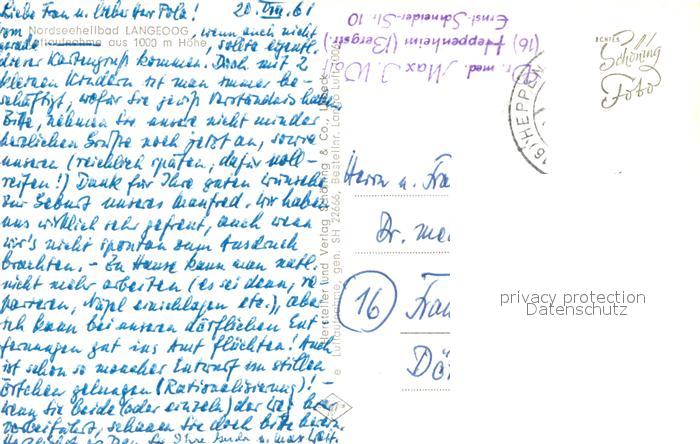 Liebe Frau u. lieber Herr Pole! 20. VIII. 61
Nordseeheilbad LANGEOOG
Luftaufnahme aus 1000 m Höhe
vom wenn auch nicht
gerade, sollte eigentl.
dieser Kartengruß kommen. Doch mit 2
kleinen Kindern ist man immer be-
schäftigt, wofür Sie gewiß Verständnis haben.
Bitte, nehmen Sie unsere nicht minder
herzlichen Grüße noch jetzt an, sowie
unseren (reichlich späten, dafür voll-
reifen!) Dank für Ihre guten Wünsche
zur Geburt unseres Manfred. Wir haben
uns wirklich sehr gefreut, auch wenn
wir's nicht spontan zum Ausdruck
brachten. - Zu Hause kann man natl.
nicht mehr arbeiten (es sei denn, re-
parieren, Nägel einschlagen etc.), aber
ich kann bei unseren dörflichen Ent-
fernungen gut ins Amt flüchten! Auch
ist schon so mancher Entwurf im stillen
Örtchen gelungen (Rationalisierung)! -
wenn Sie beide (oder einzeln) der Weg
vorbeiführt, schauen Sie doch bitte herein.
Ihre u. Max
Hersteller und Verlag Schöning & Co., Lübeck
Luftaufnahme, gen. SH 22666, Bestellnr. Lango Luft
Dr. med. Max J. W
(16) Heppenheim (Bergstr.)
Ernst-Schneider-Str. 10
(16) HEPPEN
ECHTES
Schöning
Foto
Herrn u. Fra
Dr. me
16 Fran
Dö
privacy protection
Datenschutz